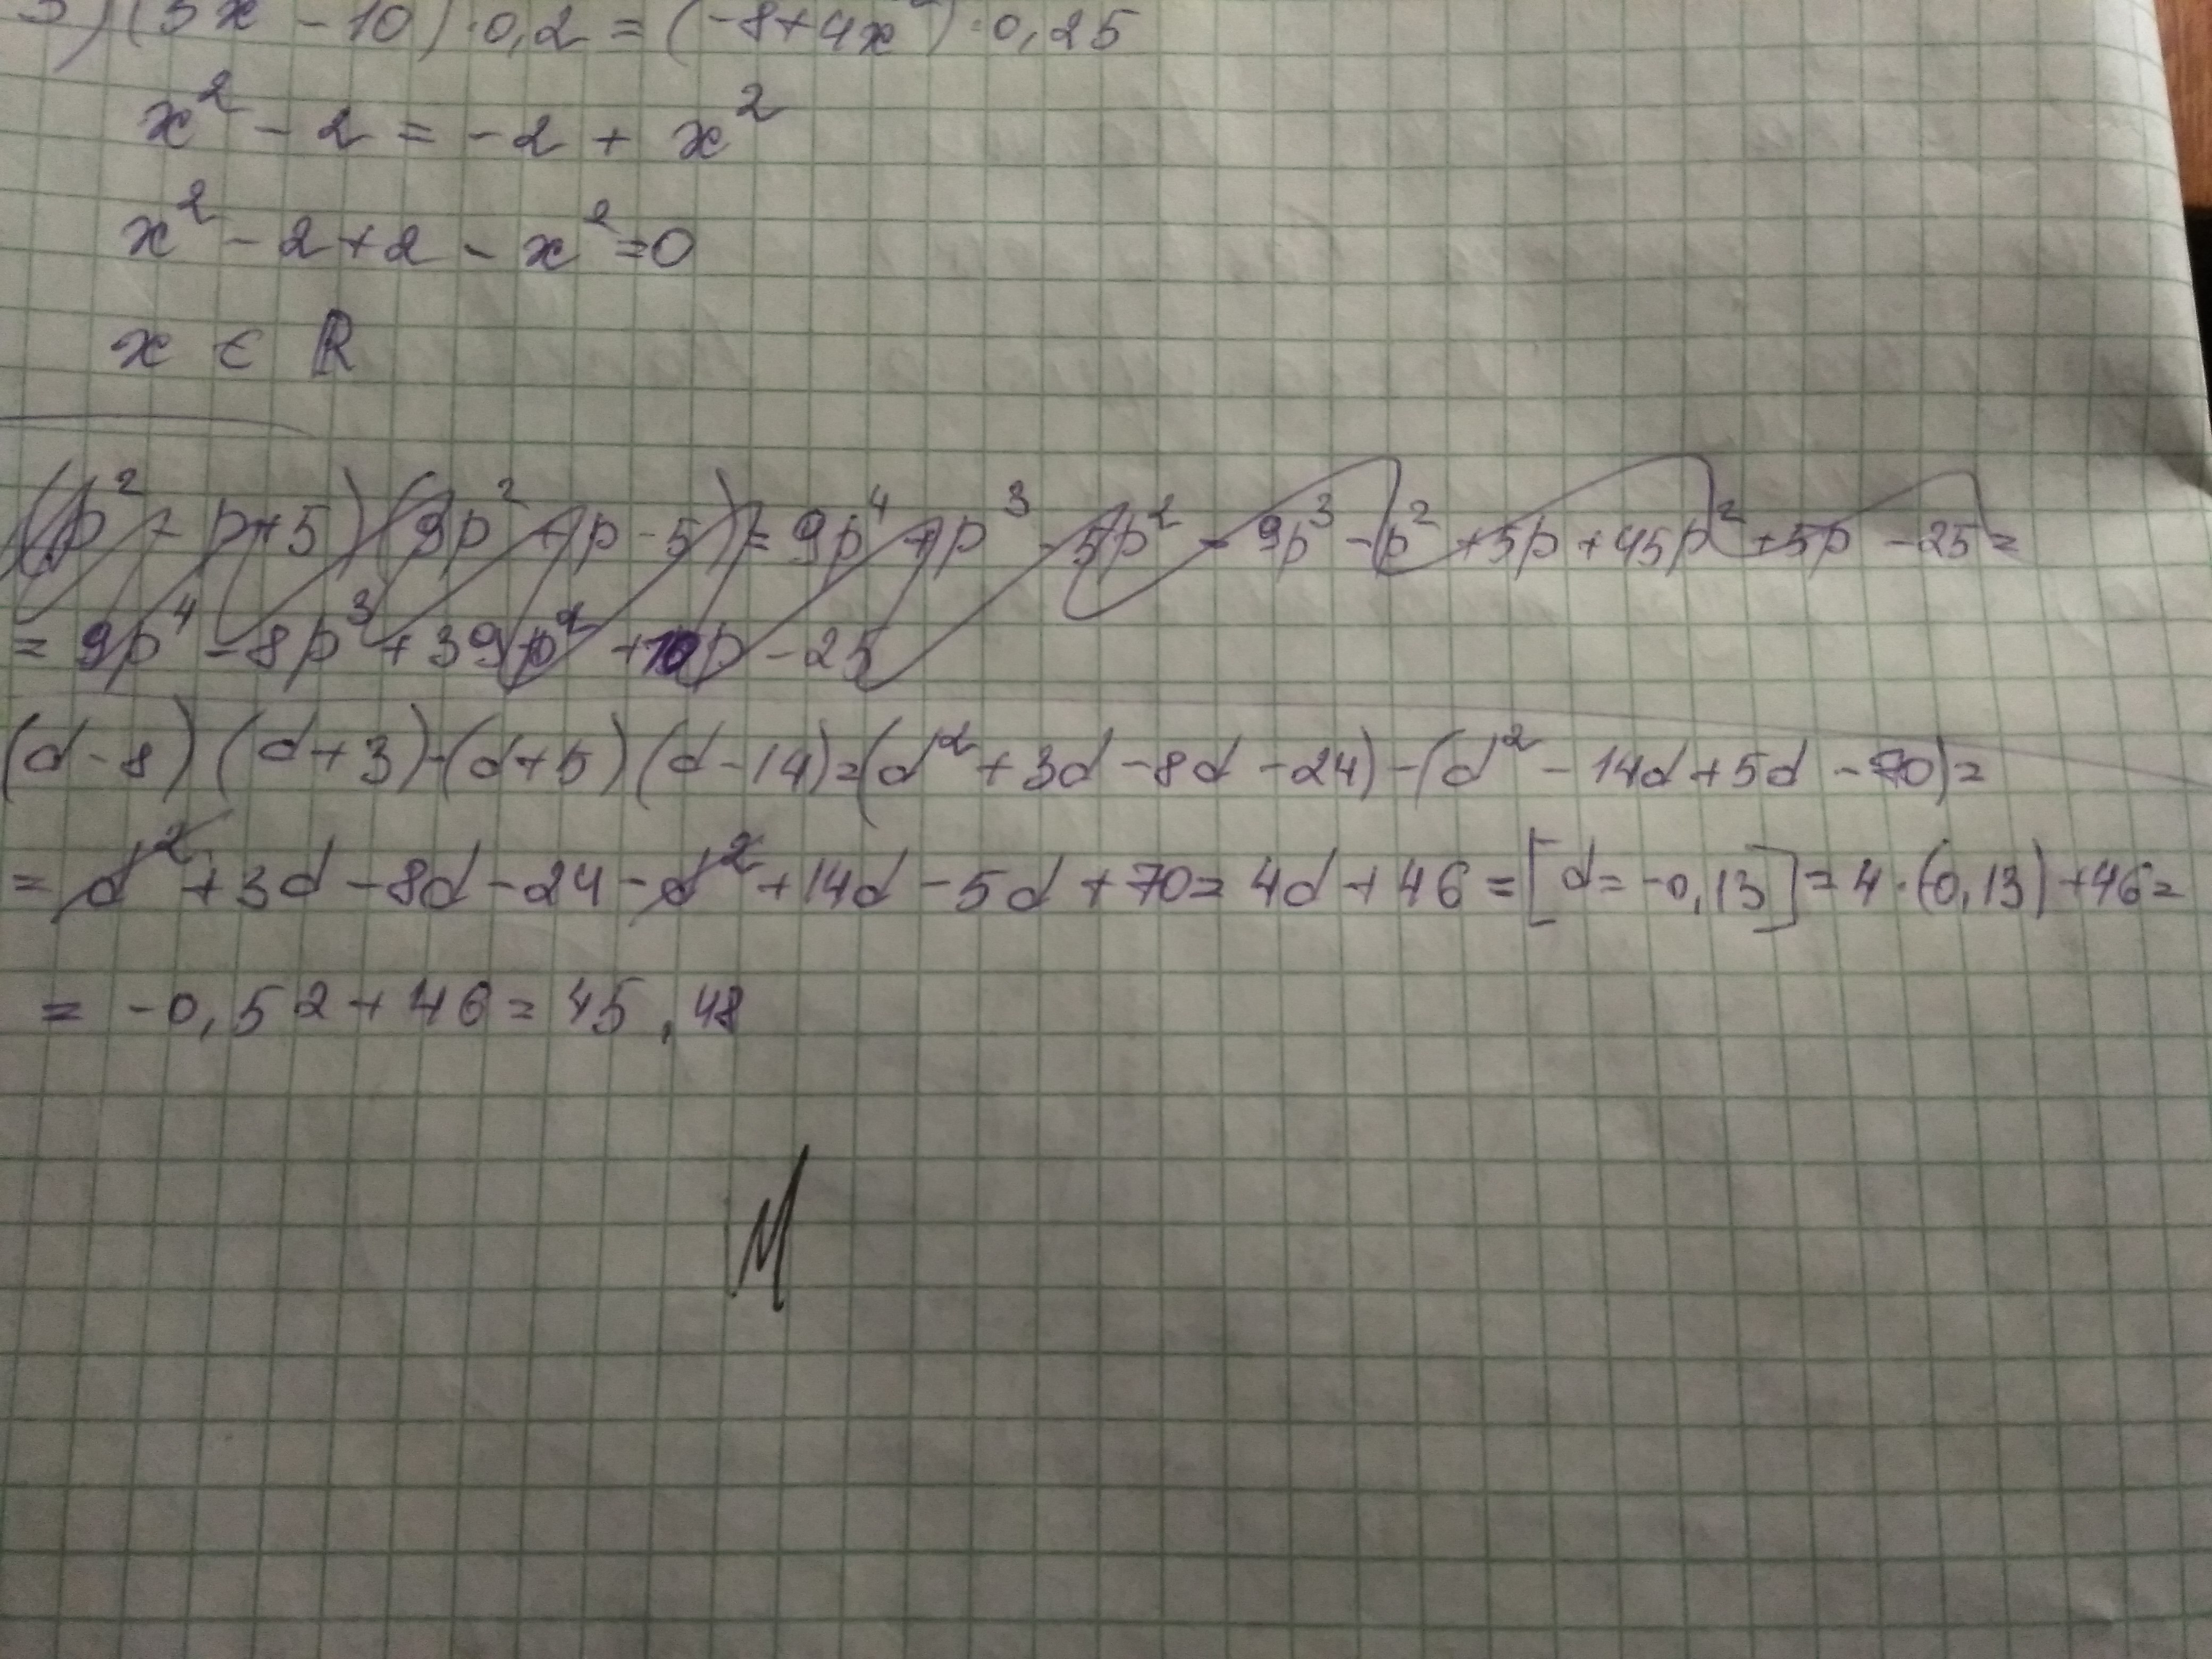 3) (5x - 10) · 0,2 = (-8+4x²) · 0,25
x² - 2 = -2 + x²
x² - 2 + 2 - x² = 0
x ∈ ℝ
(p² - p + 5)(9p² + p - 5) = 9p⁴ + p³ - 5p² - 9p³ - p² + 5p + 45p² + 5p - 25 =
= 9p⁴ - 8p³ + 39p² + 10p - 25
(d - 8)(d + 3) - (d + 5)(d - 14) = (d² + 3d - 8d - 24) - (d² - 14d + 5d - 70) =
= d² + 3d - 8d - 24 - d² + 14d - 5d + 70 = 4d + 46 = [d = -0,13] = 4 · (-0,13) + 46 =
= -0,52 + 46 = 45,48